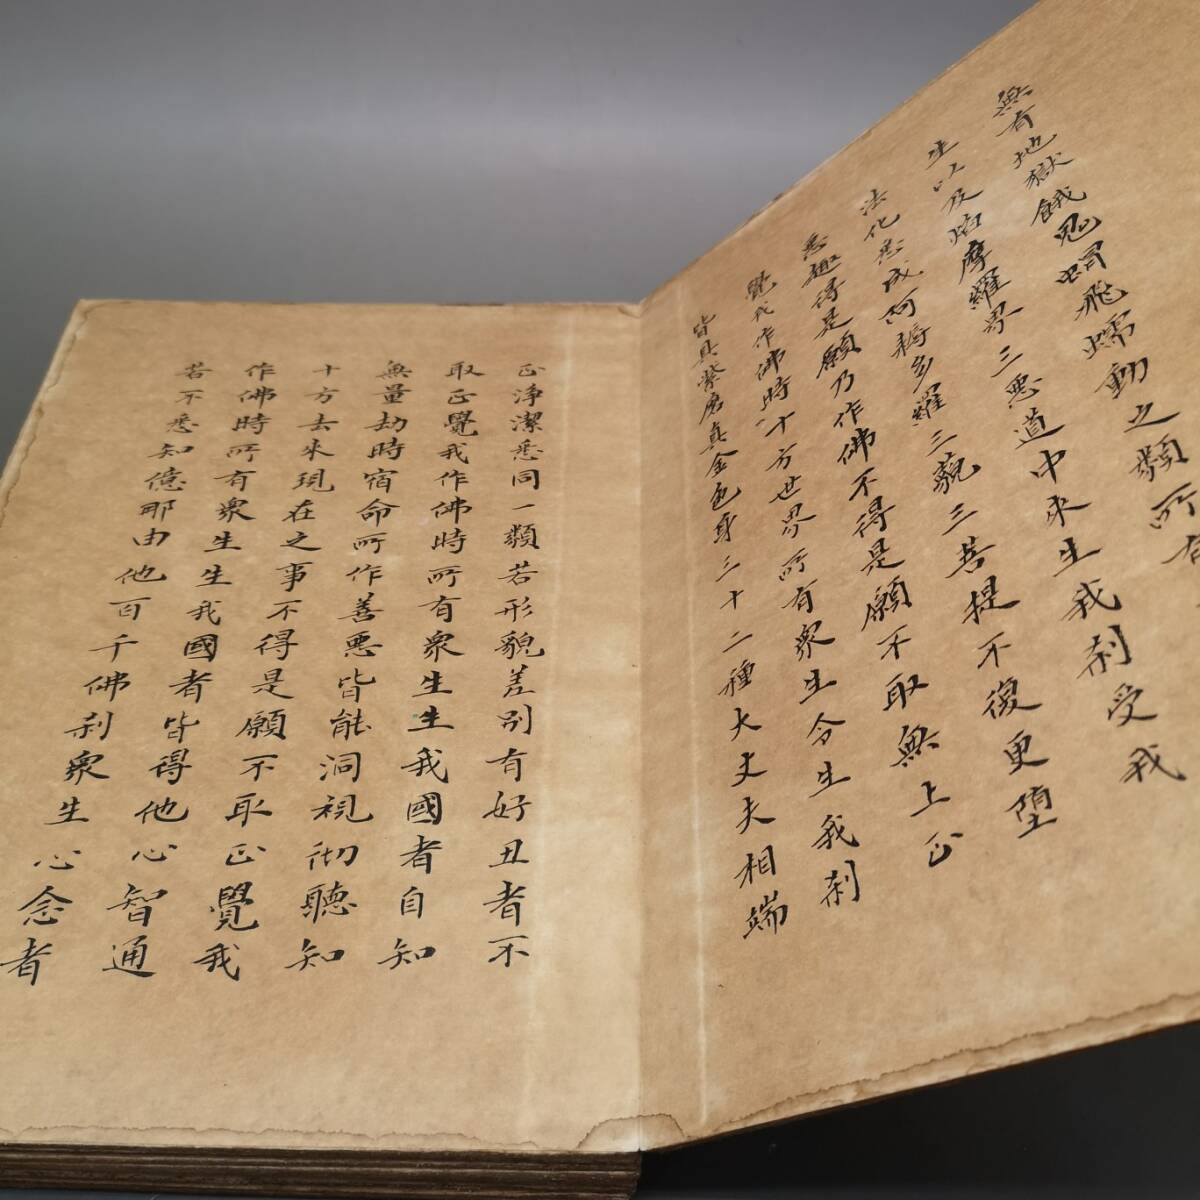 無有地獄餓鬼蜎飛蠕動之類所有
生以及焰摩羅界三惡道中來生我剎受我
法化悉成阿耨多羅三藐三菩提不復更墮
惡趣得是願乃作佛不得是願不取無上正
覺我作佛時十方世界所有眾生令生我剎
皆具紫磨真金色身三十二種大丈夫相端
正淨潔悉同一類若形貌差別有好丑者不
取正覺我作佛時所有眾生生我國者自知
無量劫時宿命所作善惡皆能洞視彻聽知
十方去來現在之事不得是願不取正覺我
作佛時所有眾生生我國者皆得他心智通
若不悉知億那由他百千佛剎眾生心念者